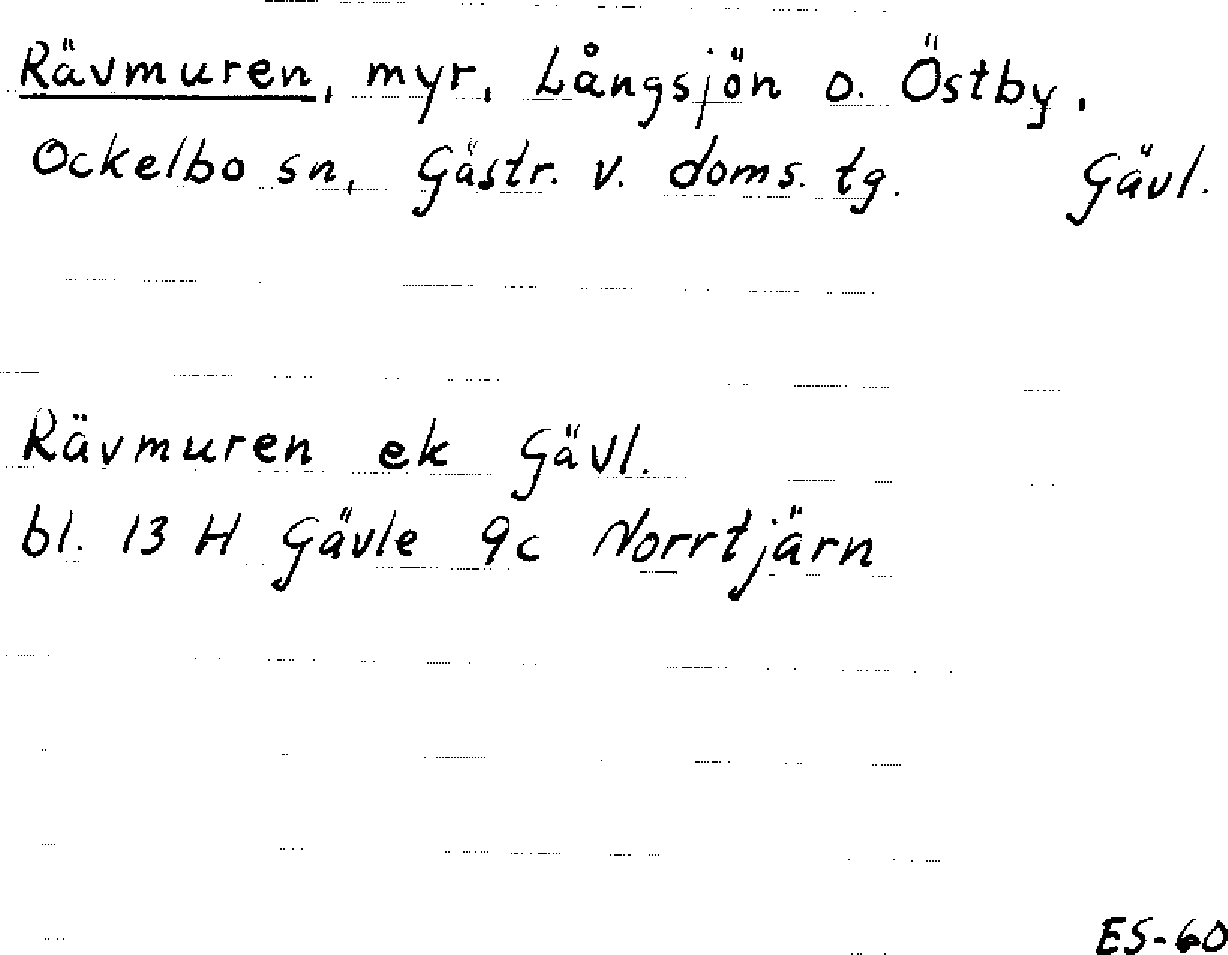 Rävmuren, myr, Långsjön o. Östby,
Ockelbo sn, Gästr. v. doms. tg. Gävl.
Rävmuren ek Gävl.
bl. 13 H Gävle 9c Norrtjärn
ES-60